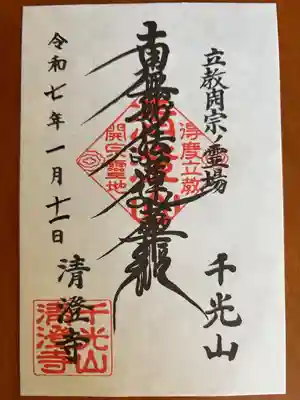 立教開宗ノ霊場
千光山
南無妙法蓮華経
令和七年一月十一日
清澄寺
得度立教
開宗霊地
千光山
清澄寺